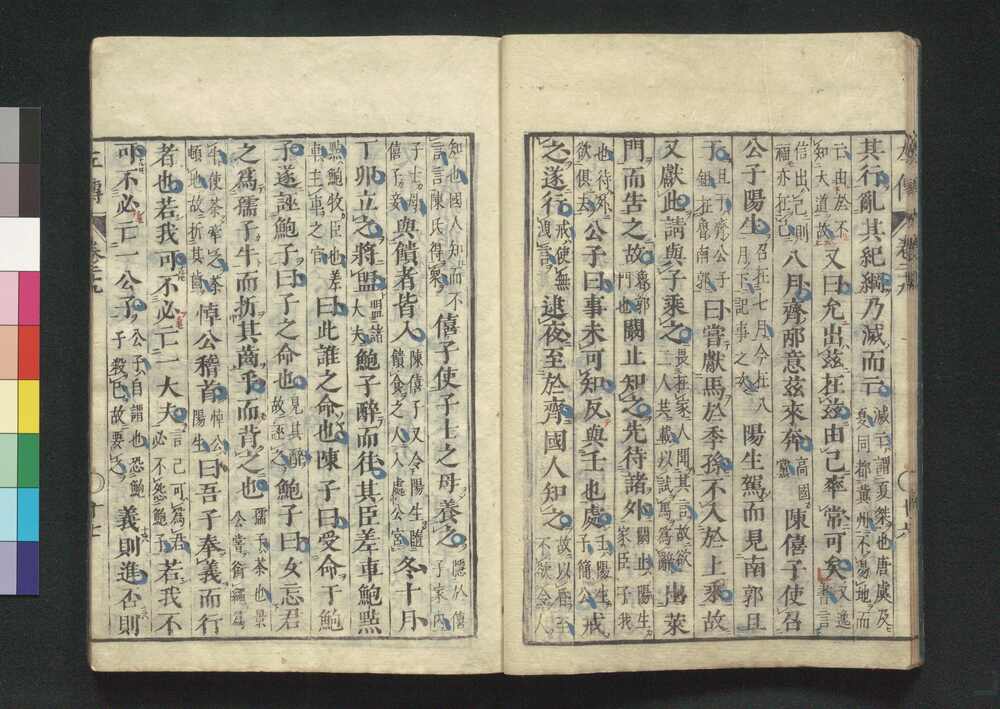 其行亂其紀綱乃滅而亡滅亡謂夏桀也唐虞及夏同都冀州不易地而
亡由於不知大道故又曰允出茲在茲由己率常可矣又逸書言
信出己則福亦在己八月齊邴意茲來奔高國黨陳僖子使召
公子陽生召在七月今在八月下記事之次陽生駕而見南郭且
于且于齊公子鉏在魯南郭曰嘗獻馬於季孫不入於上乘故
又獻此請與子乘之畏在家人聞其言故欲二人共載以試馬爲辭出萊
門而告之故魯郭門也闞止知之先待諸外闞止陽生家臣子我
也待外欲俱去公子曰事未可知反與壬也處壬陽生子簡公戒
之遂行戒使無洩言逮夜至於齊國人知之故以昏至不欲令人
知也國人知而不言言陳氏得衆僖子使子士之母養之隱於僖子家内
子士母僖子妾與饋者皆入陳僖子又令陽生隨饋食之人入處公宮冬十月
丁卯立之將盟盟諸大夫鮑子醉而往其臣差車鮑點
點鮑牧臣也差車主車之官曰此誰之命也陳子曰受命于鮑
子遂誣鮑子曰子之命也見其醉故誣之鮑子曰女忘君
之爲孺子牛而折其齒乎而背之也孺子荼也景公嘗銜繩爲
牛使荼牽之荼頓地故折其齒悼公稽首悼公陽生曰吾子奉義而行
者也若我可不必亡一大夫言己可爲君必不怨鮑子若我不
可不必亡一公子公子自謂也恐鮑子殺己故要之義則進否則